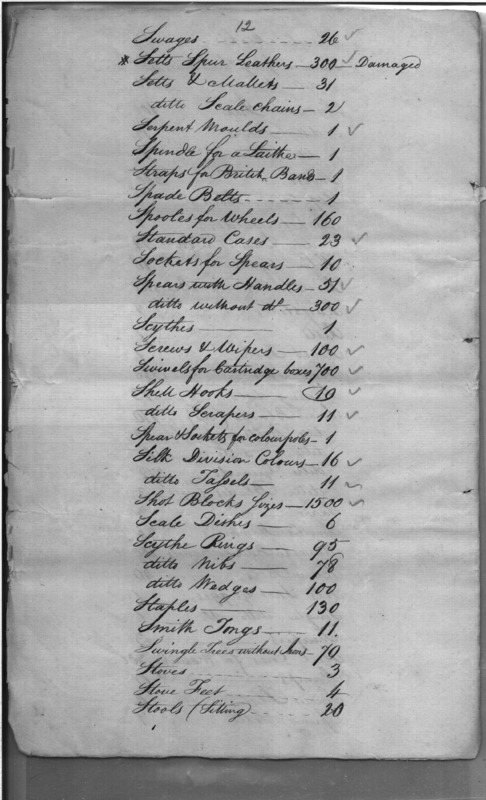 12
Swages - - - - - - 26 ✓
* Setts Spur Leathers — 300 ✓ — Damaged
Setts & Mallets — 31
ditto Scale Chains — 2
Serpent Moulds — 1 ✓
Spindle for a Laithe — 1
Straps for British Band — 1
Spade Belts - - - - - 1
Spooles for Wheels — 160
Standard Cases — 23 ✓
Sockets for Spears — 10
Spears with Handles — 51 ✓
ditto without do. — 300 ✓
Scythes — 1
Screws & Wipers — 100 ✓
Swivels for Cartridge boxes 700 ✓
Shell Hooks — 10 ✓
ditto Scrapers — 11 ✓
Spear & Sockets for colour poles — 1
Silk Division Colours — 16 ✓
ditto Tassels — 11 ✓
Shot Blocks Sizes — 1500 ✓
Scale Dishes — 6
Scythe Rings — 95
ditto Nibs — 78
ditto Wedges — 100
Staples — 130
Smith Tongs — 11.
Swingle Trees without Irons — 70
Stoves - - - - - 3
Stove Feet — 4
Stools (Sitting) - - - 20